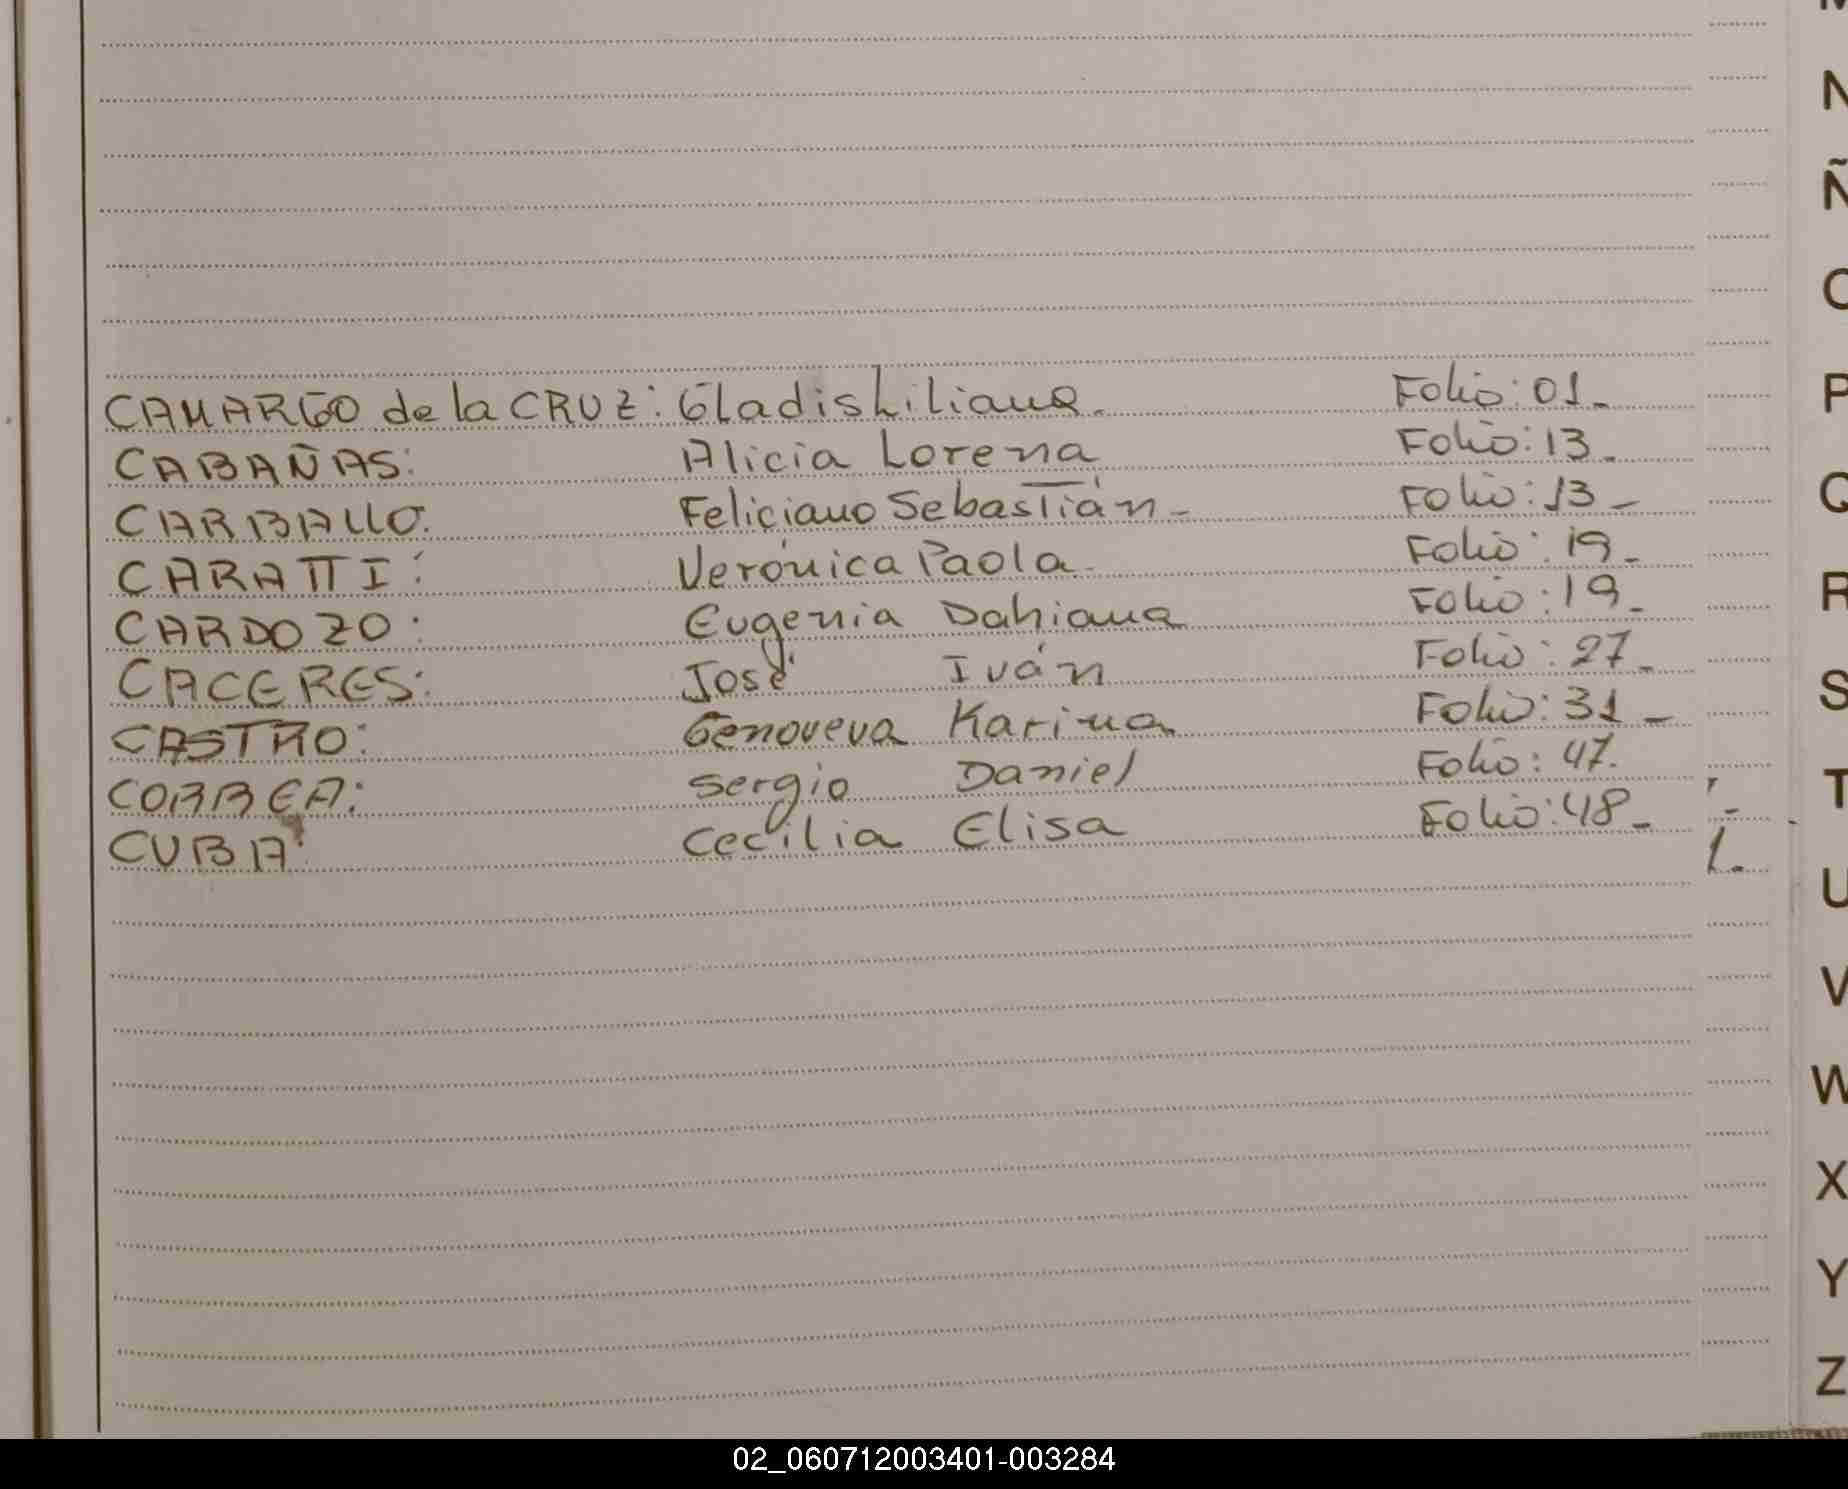 CAMARGO de la CRUZ: Gladis Liliana. Folio: 01_
CABAÑAS: Alicia Lorena Folio: 13_
CARBALLO: Feliciano Sebastián - Folio: 13 -
CARATTI: Verónica Paola. Folio: 19_
CARDOZO: Eugenia Dahiana Folio: 19_
CACERES: José Iván Folio: 27_
CASTRO: Genoveva Karina Folio: 31_
CORREA: Sergio Daniel Folio: 47.
CUBA: Cecilia Elisa Folio: 48_
N
Ñ
O
P
Q
R
S
T
U
V
W
X
Y
Z
02_060712003401-003284